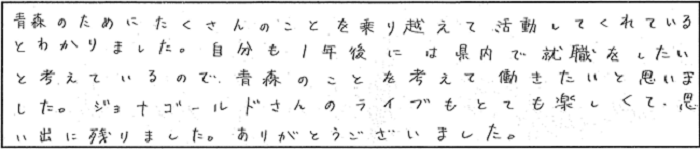 青森のためにたくさんのことを乗り越えて活動してくれている
とわかりました。自分も1年後には県内で就職をしたい
と考えているので、青森のことを考えて働きたいと思いま
した。ジョナゴールドさんのライブもとても楽しくて、思
い出に残りました。ありがとうございました。